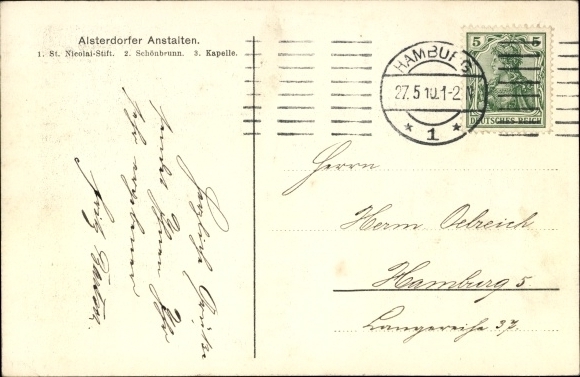 Alsterdorfer Anstalten.
1. St. Nicolai-Stift. 2. Schönbrunn. 3. Kapelle.
HAMBURG
27.5.10.1-2 N
* 1 *
5 5
DEUTSCHES REICH
Herrn
Herm Oelreich
Hamburg 5
Langereihe 37.
Herzliche Grüße
sendet Ihnen Ihr
sehr ergebener
Fritz